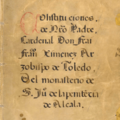 Constituciones
de Nro Padre,
Cardenal Don Frai
fran. Ximenez Ar
zobispo de Toledo,
Del monasterio de
S. Ju. de la penitecia
de Alcala,